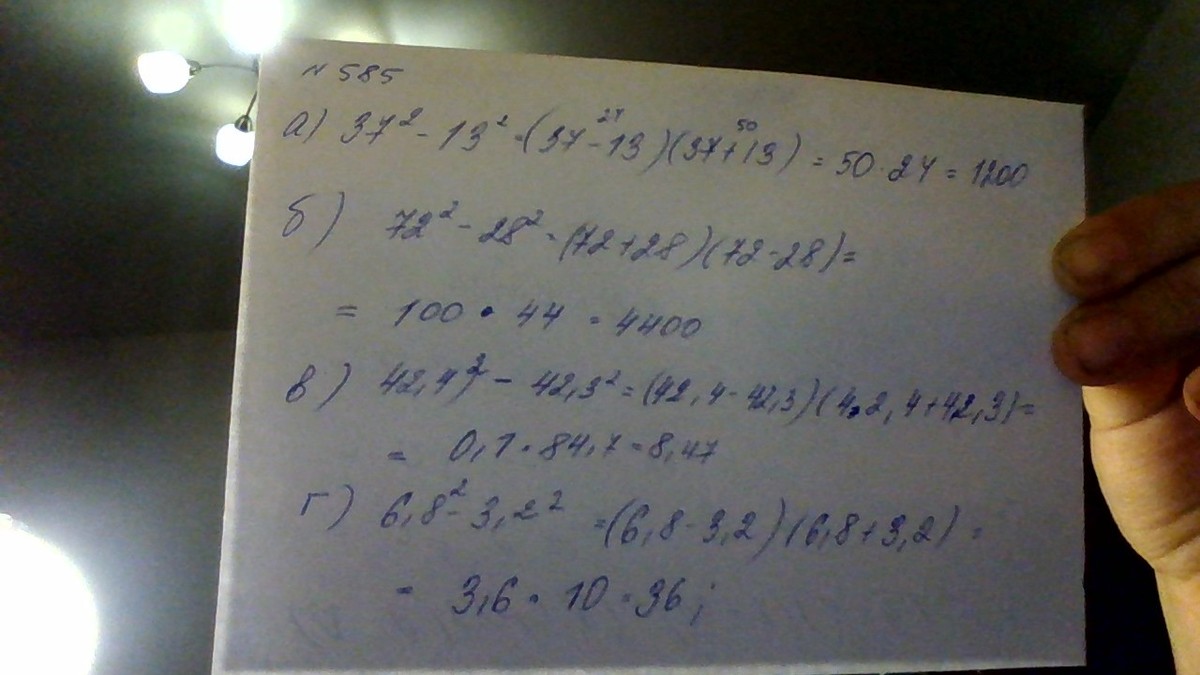 № 585
24 50
а) 37² - 13² = (37-13)(37+13) = 50 · 24 = 1200
б) 72² - 28² = (72+28)(72-28) =
= 100 · 44 = 4400
в) 42,4² - 42,3² = (42,4-42,3)(42,4+42,3) =
= 0,1 · 84,7 = 8,47
г) 6,8² - 3,2² = (6,8-3,2)(6,8+3,2) =
= 3,6 · 10 = 36;